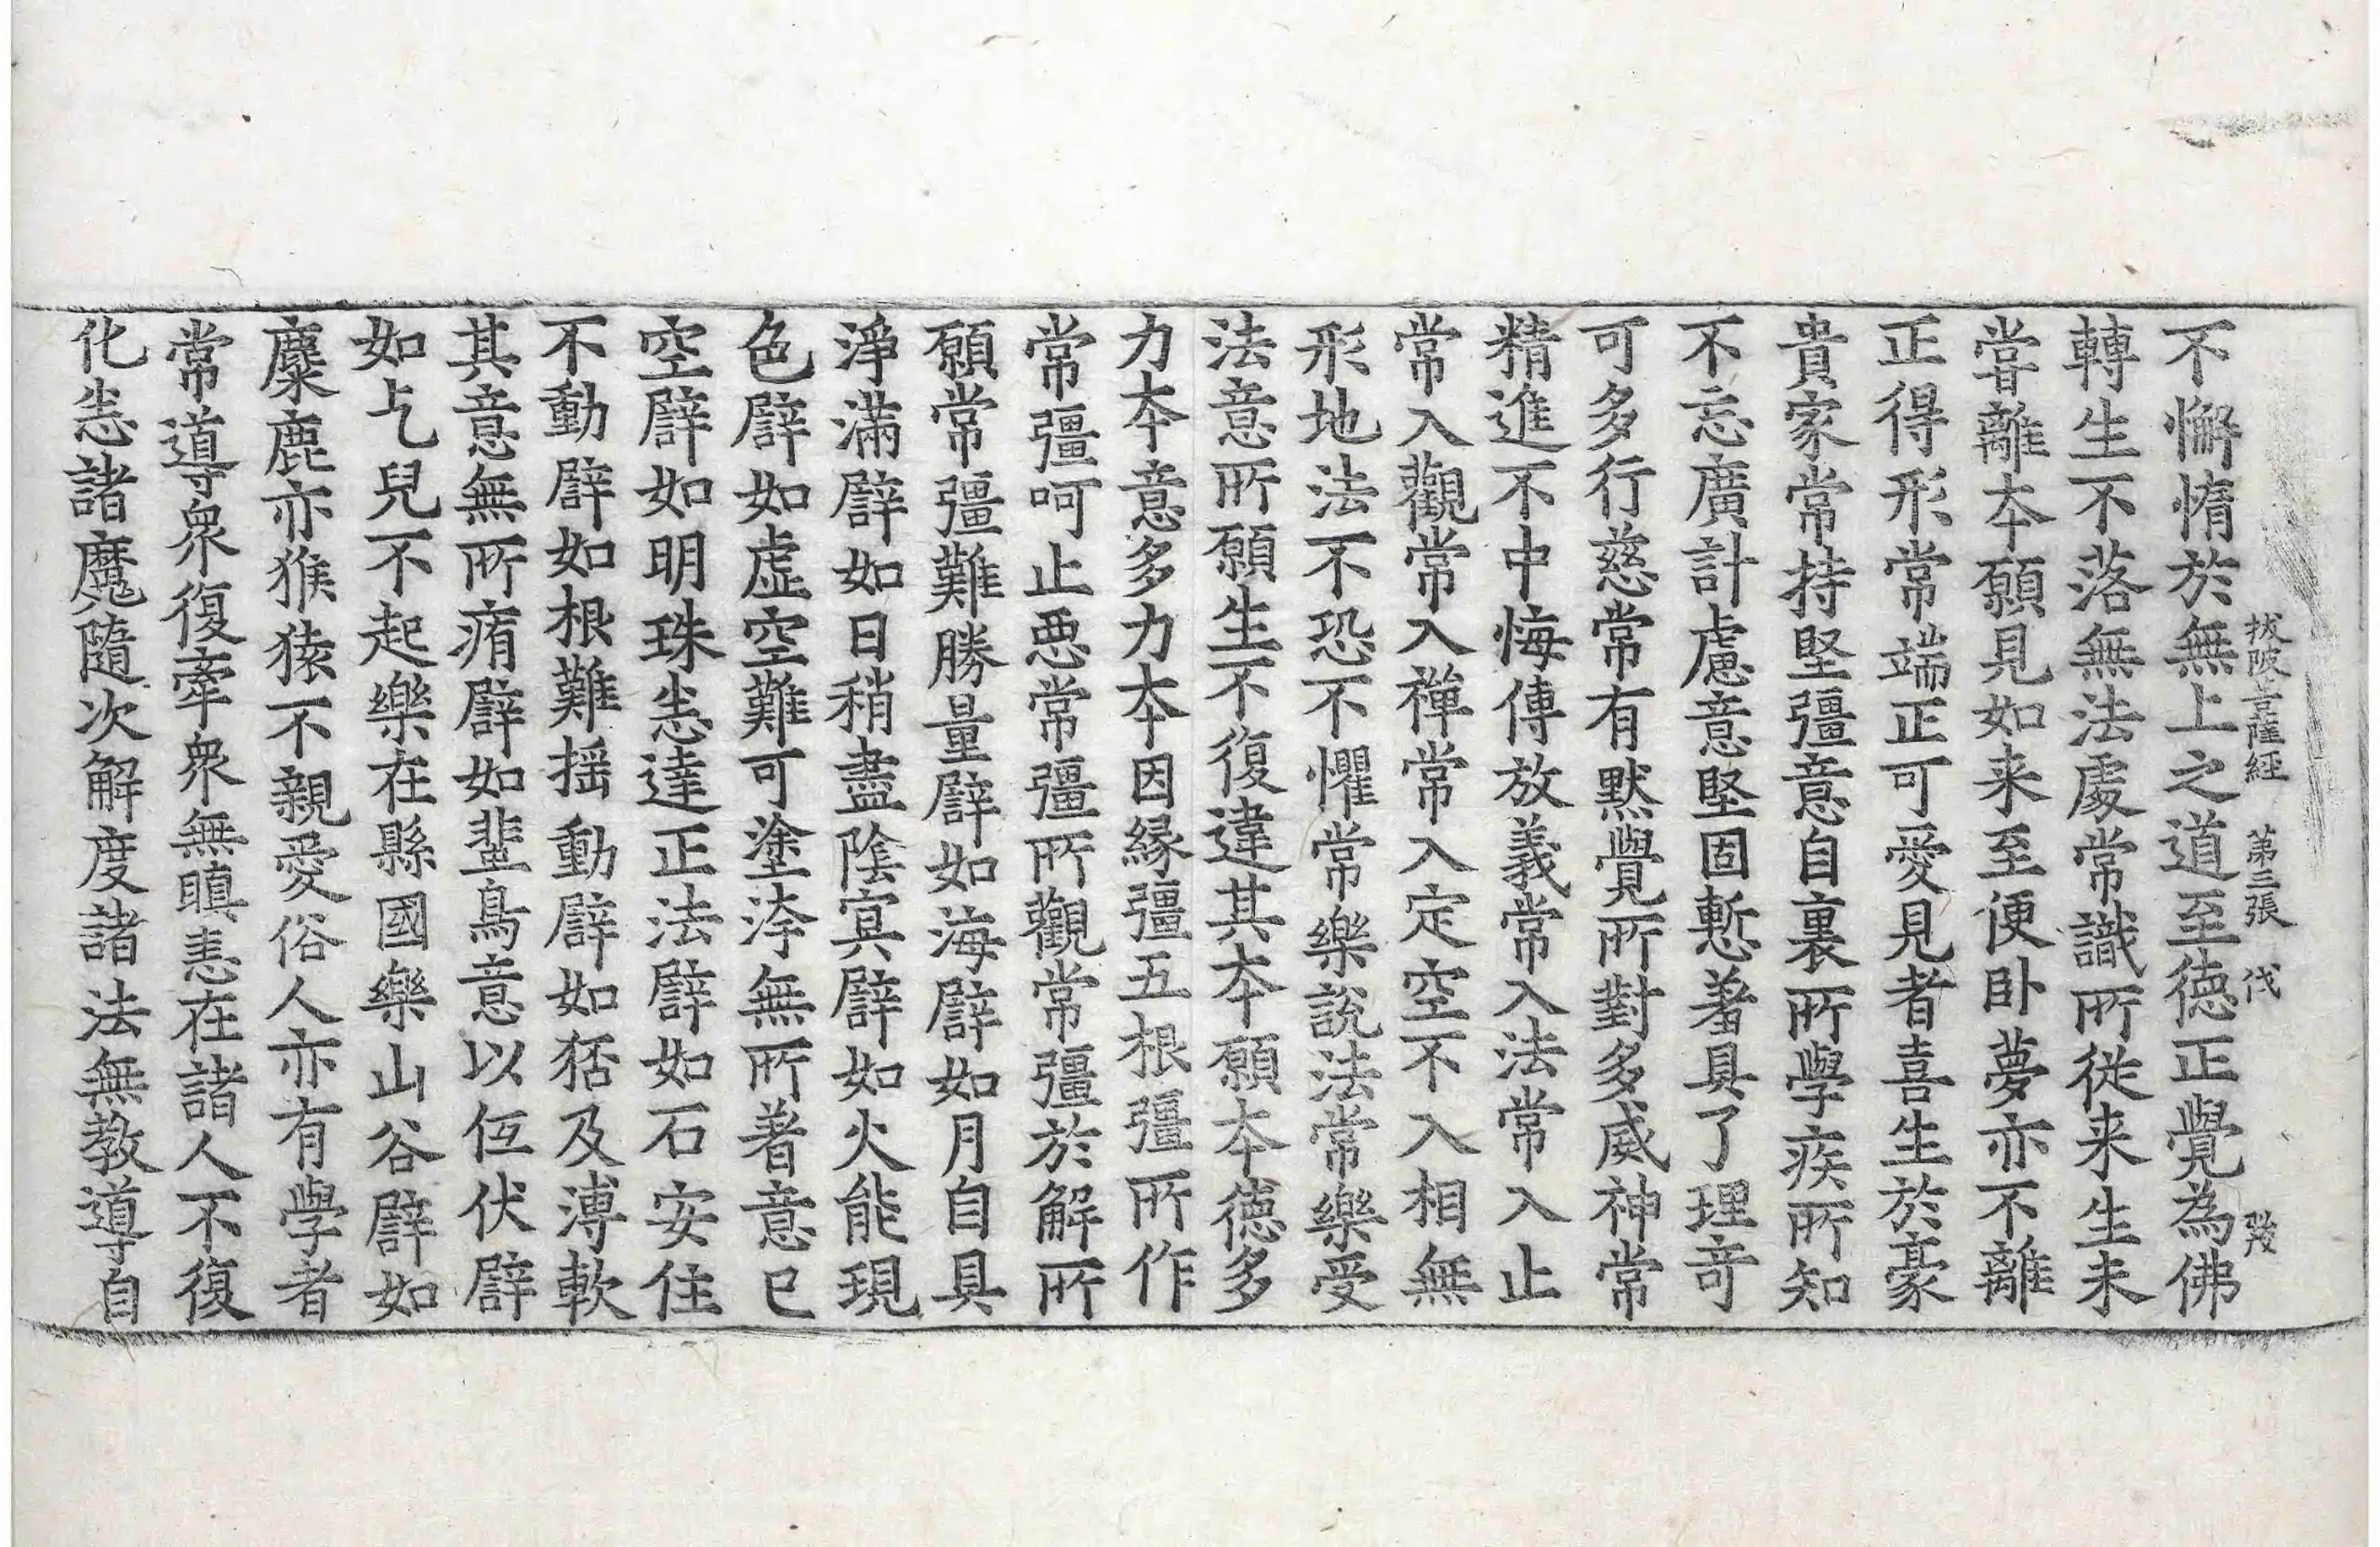 拔陂菩薩經 第三張 伐
不懈惰於無上之道至德正覺為佛
轉生不落無法處常識所從来生未
甞離本願見如来至便卧夢亦不離
正得形常端正可愛見者喜生於豪
貴家常持堅彊意自裏所學疾所知
不忘廣計慮意堅固慙著具了理竒
可多行慈常有黙覺所對多威神常
精進不中悔傳放義常入法常入止
常入觀常入禪常入定空不入相無
形地法不恐不懼常樂說法常樂受
法意所願生不復違其本願本德多
力本意多力本因緣彊五根彊所作
常彊呵止惡常彊所觀常彊於解所
願常彊難勝量辟如海辟如月自具
淨滿辟如日稍盡陰㝠辟如火能現
色辟如虛空難可塗洿無所著意已
空辟如明珠悉達正法辟如石安住
不動辟如根難揺動辟如狧及溥軟
其意無所痏辟如蜚鳥意以伍伏辟
如乞兒不起樂在縣國樂山谷辟如
麋鹿亦猴猿不親愛俗人亦有學者
常導衆復牽衆無瞋恚在諸人不復
化悉諸魔隨次解度諸法無教導自